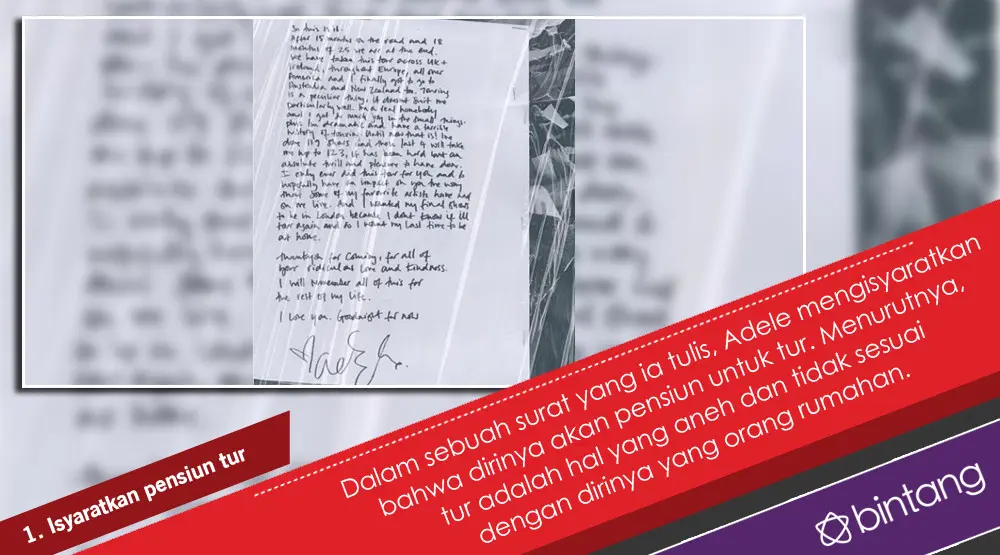 So this is it.
After 15 months on the road and 18
months of 25 we are at the end.
We have taken this tour across UK +
Ireland, throughout Europe, all over
America and I finally got to go to
Australia and New Zealand too. Touring
is a peculiar thing, it doesn't suit me
particularly well. Im a real homebody
and I get so much joy in the small things.
plus I'm dramatic and have a terrible
history of touring. Until now that is! Ive
done 119 shows and these last 4 will take
me up to 123, it has been hard but an
absolute thrill and pleasure to have done.
I only ever did this tour for you and to
hopefully have an impact on you the way
that some of my favorite artists have had
on me live. And I wanted my final shows
to be in London because I don't know if I'll
tour again and so I want my last time to be
at home.
Thankyou for coming, for all of
your ridiculous love and kindness.
I will remember all of this for
the rest of my life.
I love you. Goodnight for now
1. Isyaratkan pensiun tur
Dalam sebuah surat yang ia tulis, Adele mengisyaratkan
bahwa dirinya akan pensiun untuk tur. Menurutnya,
tur adalah hal yang aneh dan tidak sesuai
dengan dirinya yang orang rumahan.
bintang